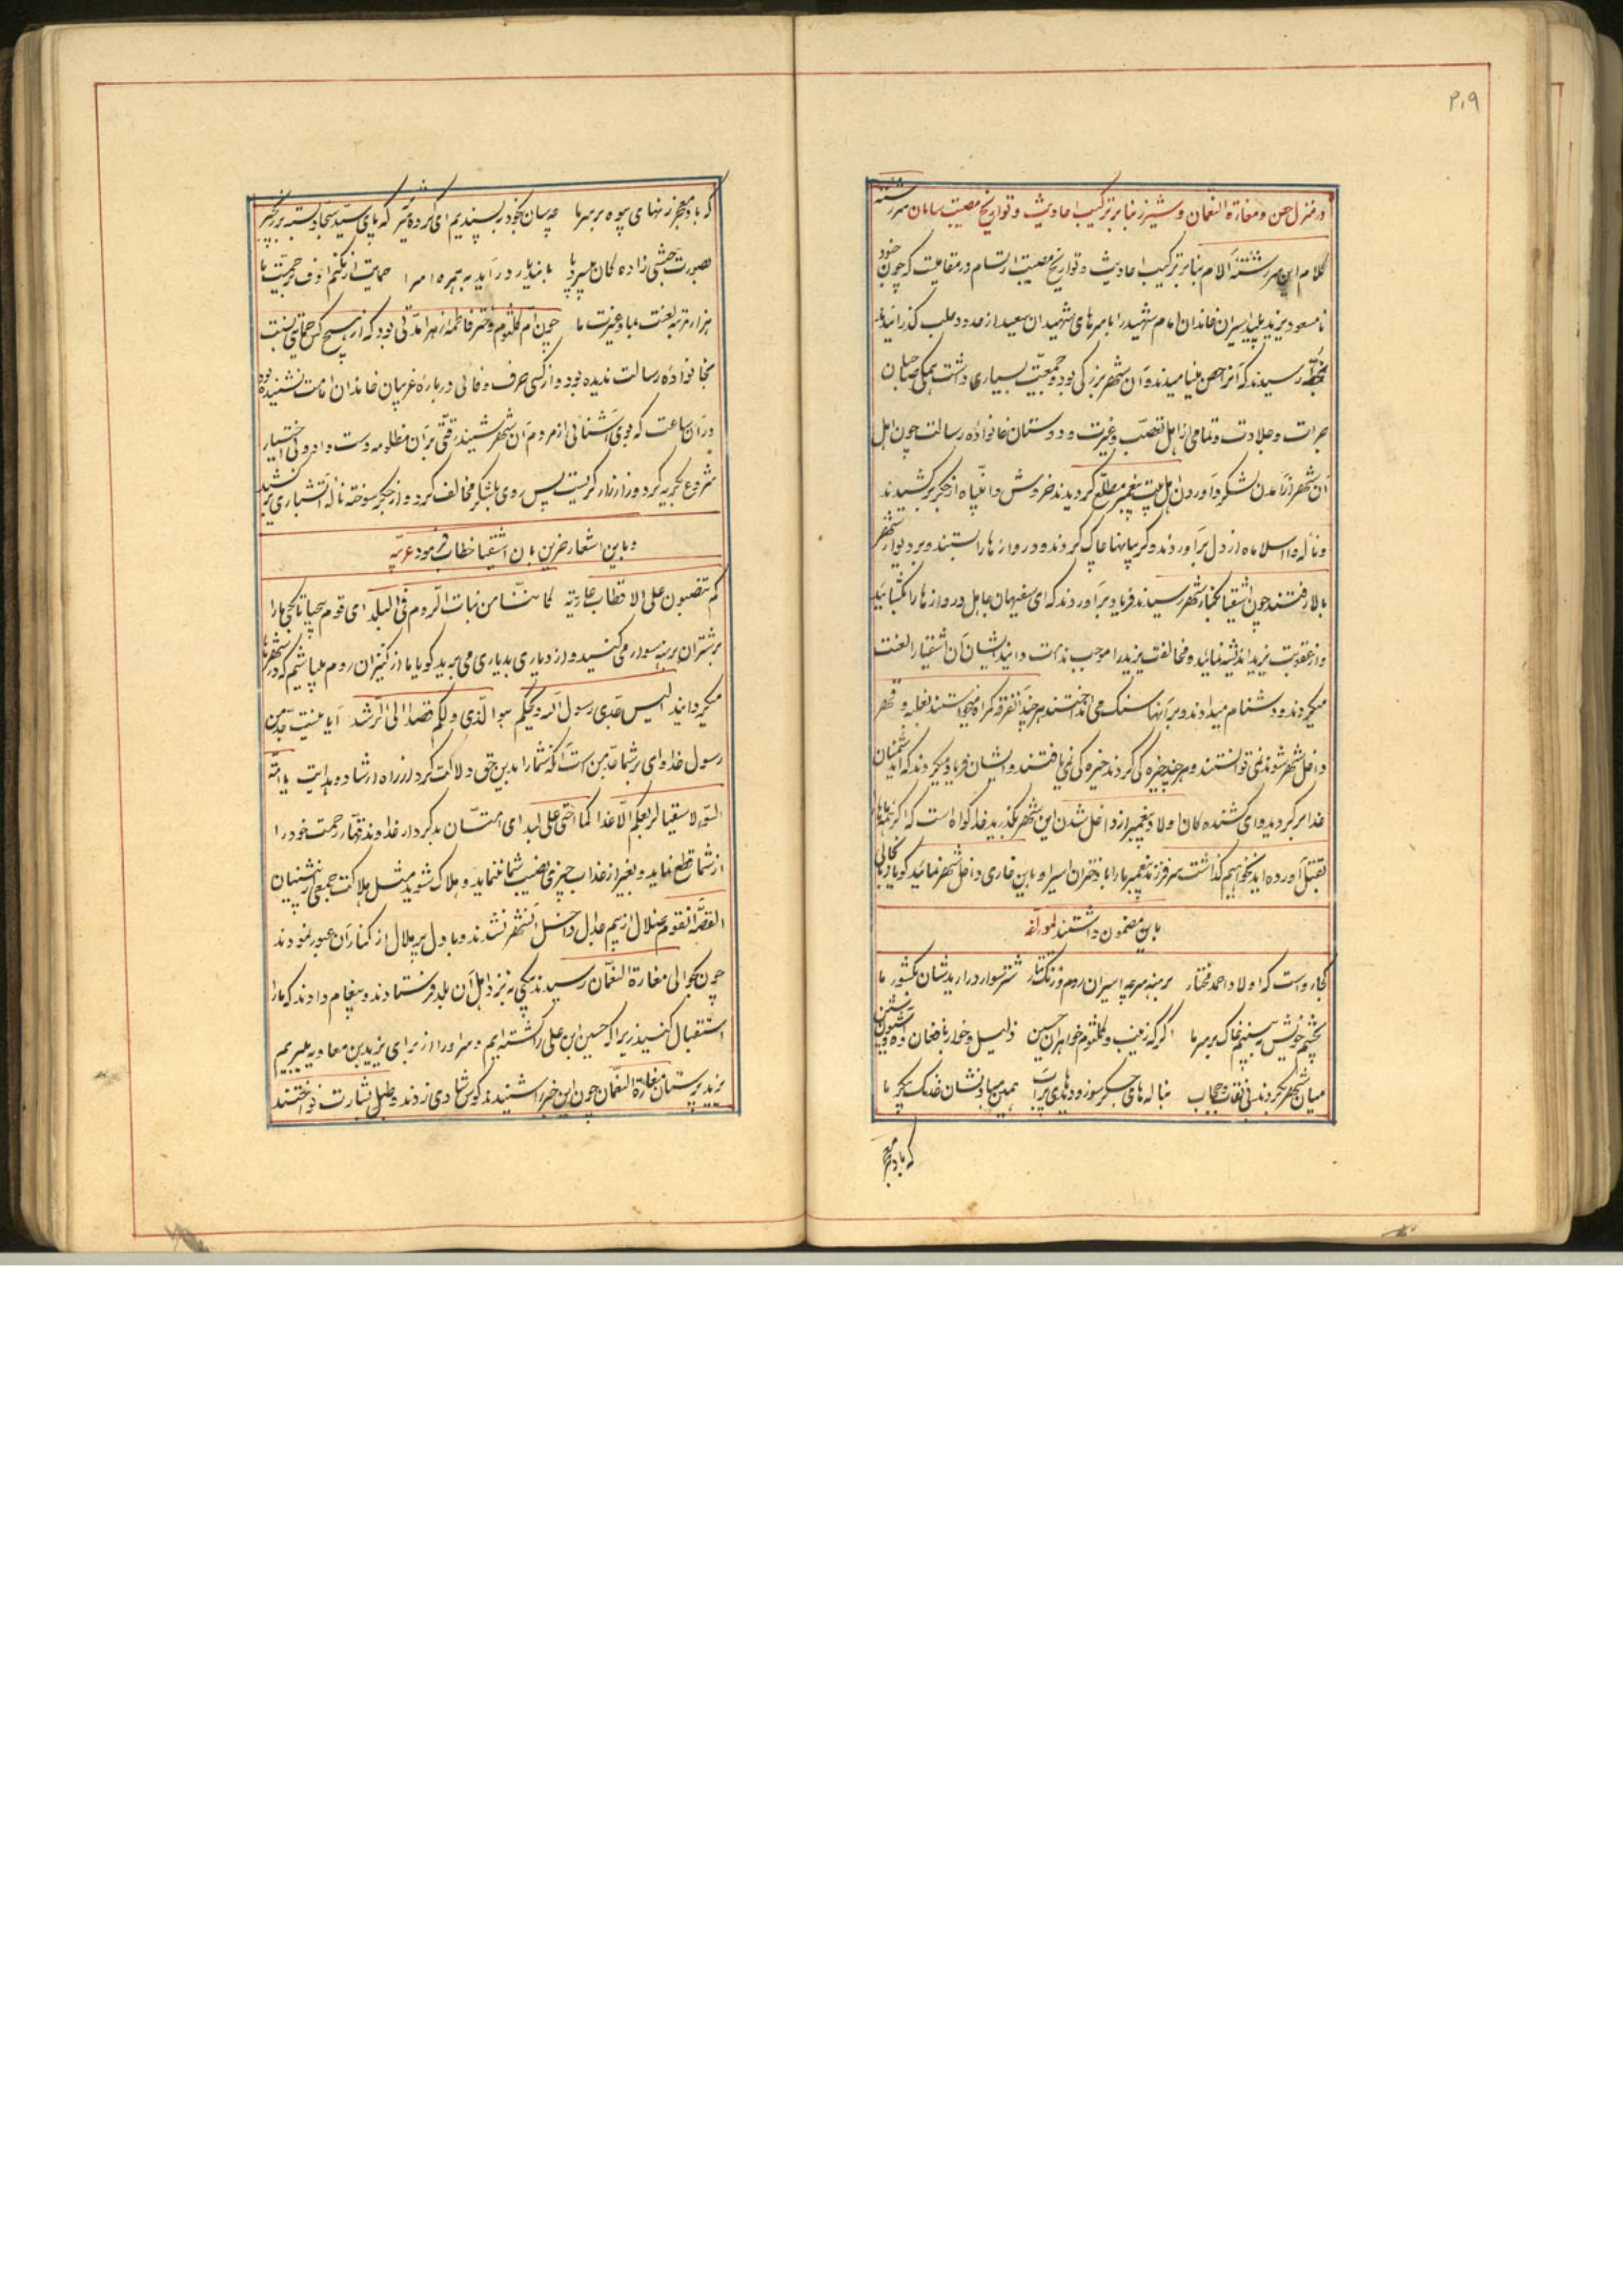 ۳۰۹
در منزل حمص و مغازة النعمان و شیزر بنا بر ترکیب احادیث و تواریخ مصیبت سامان سررشته
کلام این سررشته آلام بنا بر ترکیب احادیث و تواریخ مصیبت ارتسام در مقامیست که چون جنود
نامسعود یزید پلید اسیران خاندان امام شهید را با سرهای شهیدان سعید از حدود حلب گذرانیدند
رسیدند که آنرا حمص مینامیدند و آن شهر بزرگی بود و جمعیت بسیاری داشت همگی صاحبان
جرات و جلادت و تمامی از اهل تعصب و غیرت و دوستان خانواده رسالت چون اهل
آن شهر از آمدن لشکر و آوردن اهل بیت پیغمبر مطلع گردیدند خروش وا نبیاه از جگر برکشیدند
و ناله وا اسلاماه از دل برآوردند و گریبانها چاک کردند و دروازها را بستند و بر دیوار شهر
بالا رفتند چون اشقیا بکنار شهر رسیدند فریاد برآوردند که ای سفیهان جاهل دروازها را بگشائید
و از عقوبت یزید اندیشه نمائید و مخالفت یزید را موجب ندامت دانید ایشان آن اشقیا را لعنت
میکردند و دشنام میدادند و بر آنها سنگ می انداختند هر چند آنفرقه گمراه میخواستند بغلبه و قهر
داخل شهر شوند نمی توانستند و هر چند خیره گی کردند خیره گی نمی یافتند و ایشان فریاد میکردند که ای دشمنان
خدا برگردید و ای کشنده کان اولاد پیغمبر از داخل شدن این شهر بگذرید خدا گواه است که اگر همه ما را
بقتل آورده اید نخواهیم گذاشت سر فرزند پیغمبر ما را با دختران اسیر او باین خاری داخل شهر نمائید گویا زبانحالی
باین مضمون داشتند لمؤلفه
کجا رواست که اولاد احمد مختار برهنه سر چه اسیران روم و زنگ تتار شتر سوار درارید شان بکشور ما
بچشم خویش ببینیم خاک بر سر ما اگر که زینب و کلثوم خواهران حسین ذلیل و خوار با فغان و شیون
میان شهر بگردند بی نقاب و حجاب بناله های جگر سوز و دیدهای پرآب همین مباد نشان خدنگ پیکر ما
که باد معجر
که باد معجر زنهای بیوه بر سر ما چه سان بخود بپسندیم ای گروه شریر که پای سید سجاد بسته بر زنجیر
بصورت حبشی زاده کان بی سر و پا باین دیار درآید به همره اسرا حمایت ار نکنم اوف بر حمیت ما
هزار مرتبه لعنت بما و غیرت ما چون ام کلثوم دختر فاطمه زهرا مدتی بود که از هیچ کس حمایتی نسبت
بخانواده رسالت ندیده بود و از کسی حرف وفائی در باره غریبان خاندان امامت نشنیده بود
در آن ساعت که بوی آشنائی از مردم آن شهر شنید رقتی بر آن مظلومه دست داد و بی اختیار
شروع بگریه کرد و زار زار گریست پس روی بلشکر مخالف کرد و از جگر سوخته ناله آتشباری برکشید
و باین اشعار حزین بان اشقیا خطاب فرمود عربیه
کم تنصبون علی الاقطاب عاریة کاننا من بنات الروم فی البلد ای قوم بیحیا تا بکی ما را
بر شتران برهنه سوار می کنید و از دیاری بدیاری می برید گویا ما از کنیزان روم میباشیم که در شهرها
میگردانید الیس جدی رسول الله ویلکم هو الذی دلکم قصدا الی الرشد آیا نیست جد من
رسول خدا وای بر شما جد من است آنکه شما را بدین حق دلالت کرد از راه ارشاد و هدایت یا امة
السوء لا سقیا لربعکم الا عذابا کما اخنی علی لبد ای امتان بدکردار خداوند قهار رحمت خود را
از شما قطع نماید و بغیر از عذاب چیزی نصیب شما ننماید و هلاک شوید مثل هلاکت جمعی از پیشینیان
القصه آنقوم ضلال از بیم جدال داخل آنشهر نشدند و با دل پر ملال از کنار آن عبور نمودند
چون بحوالی مغازة النعمان رسیدند پیکی به نزد اهل آن بلد فرستادند و پیغام دادند که ما را
استقبال کنید زیرا که حسین ابن علی را کشته ایم و سر او را از برای یزید بن معاویه میبریم
یزید پرستان مغازة النعمان چون این خبر را شنیدند کوس شادی زدند و طبل بشارت نواختند